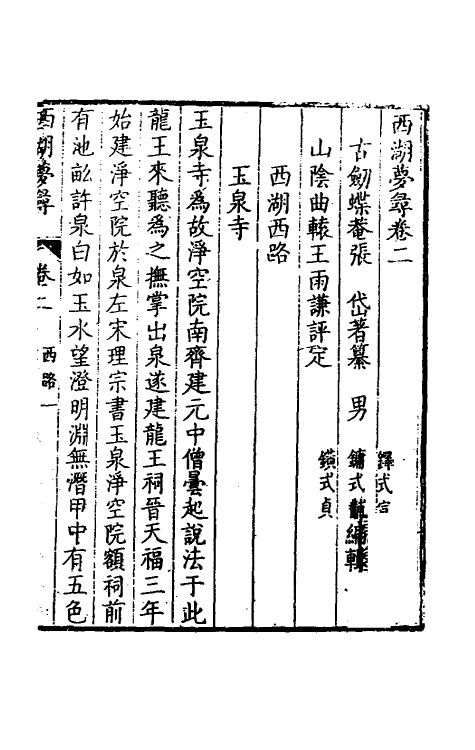 西湖夢尋卷二
古劒蝶菴張　岱著纂　男　鐸式言
鏞式　編輯
山陰曲轅王雨謙評定　鐄式貞
西湖西路
玉泉寺
玉泉寺爲故淨空院南齊建元中僧曇起說法于此
龍王來聽爲之撫掌出泉遂建龍王祠晉天福三年
始建淨空院於泉左宋理宗書玉泉淨空院額祠前
有池畝許泉白如玉水望澄明淵無潛甲中有五色
西湖夢尋　卷二　西路　一